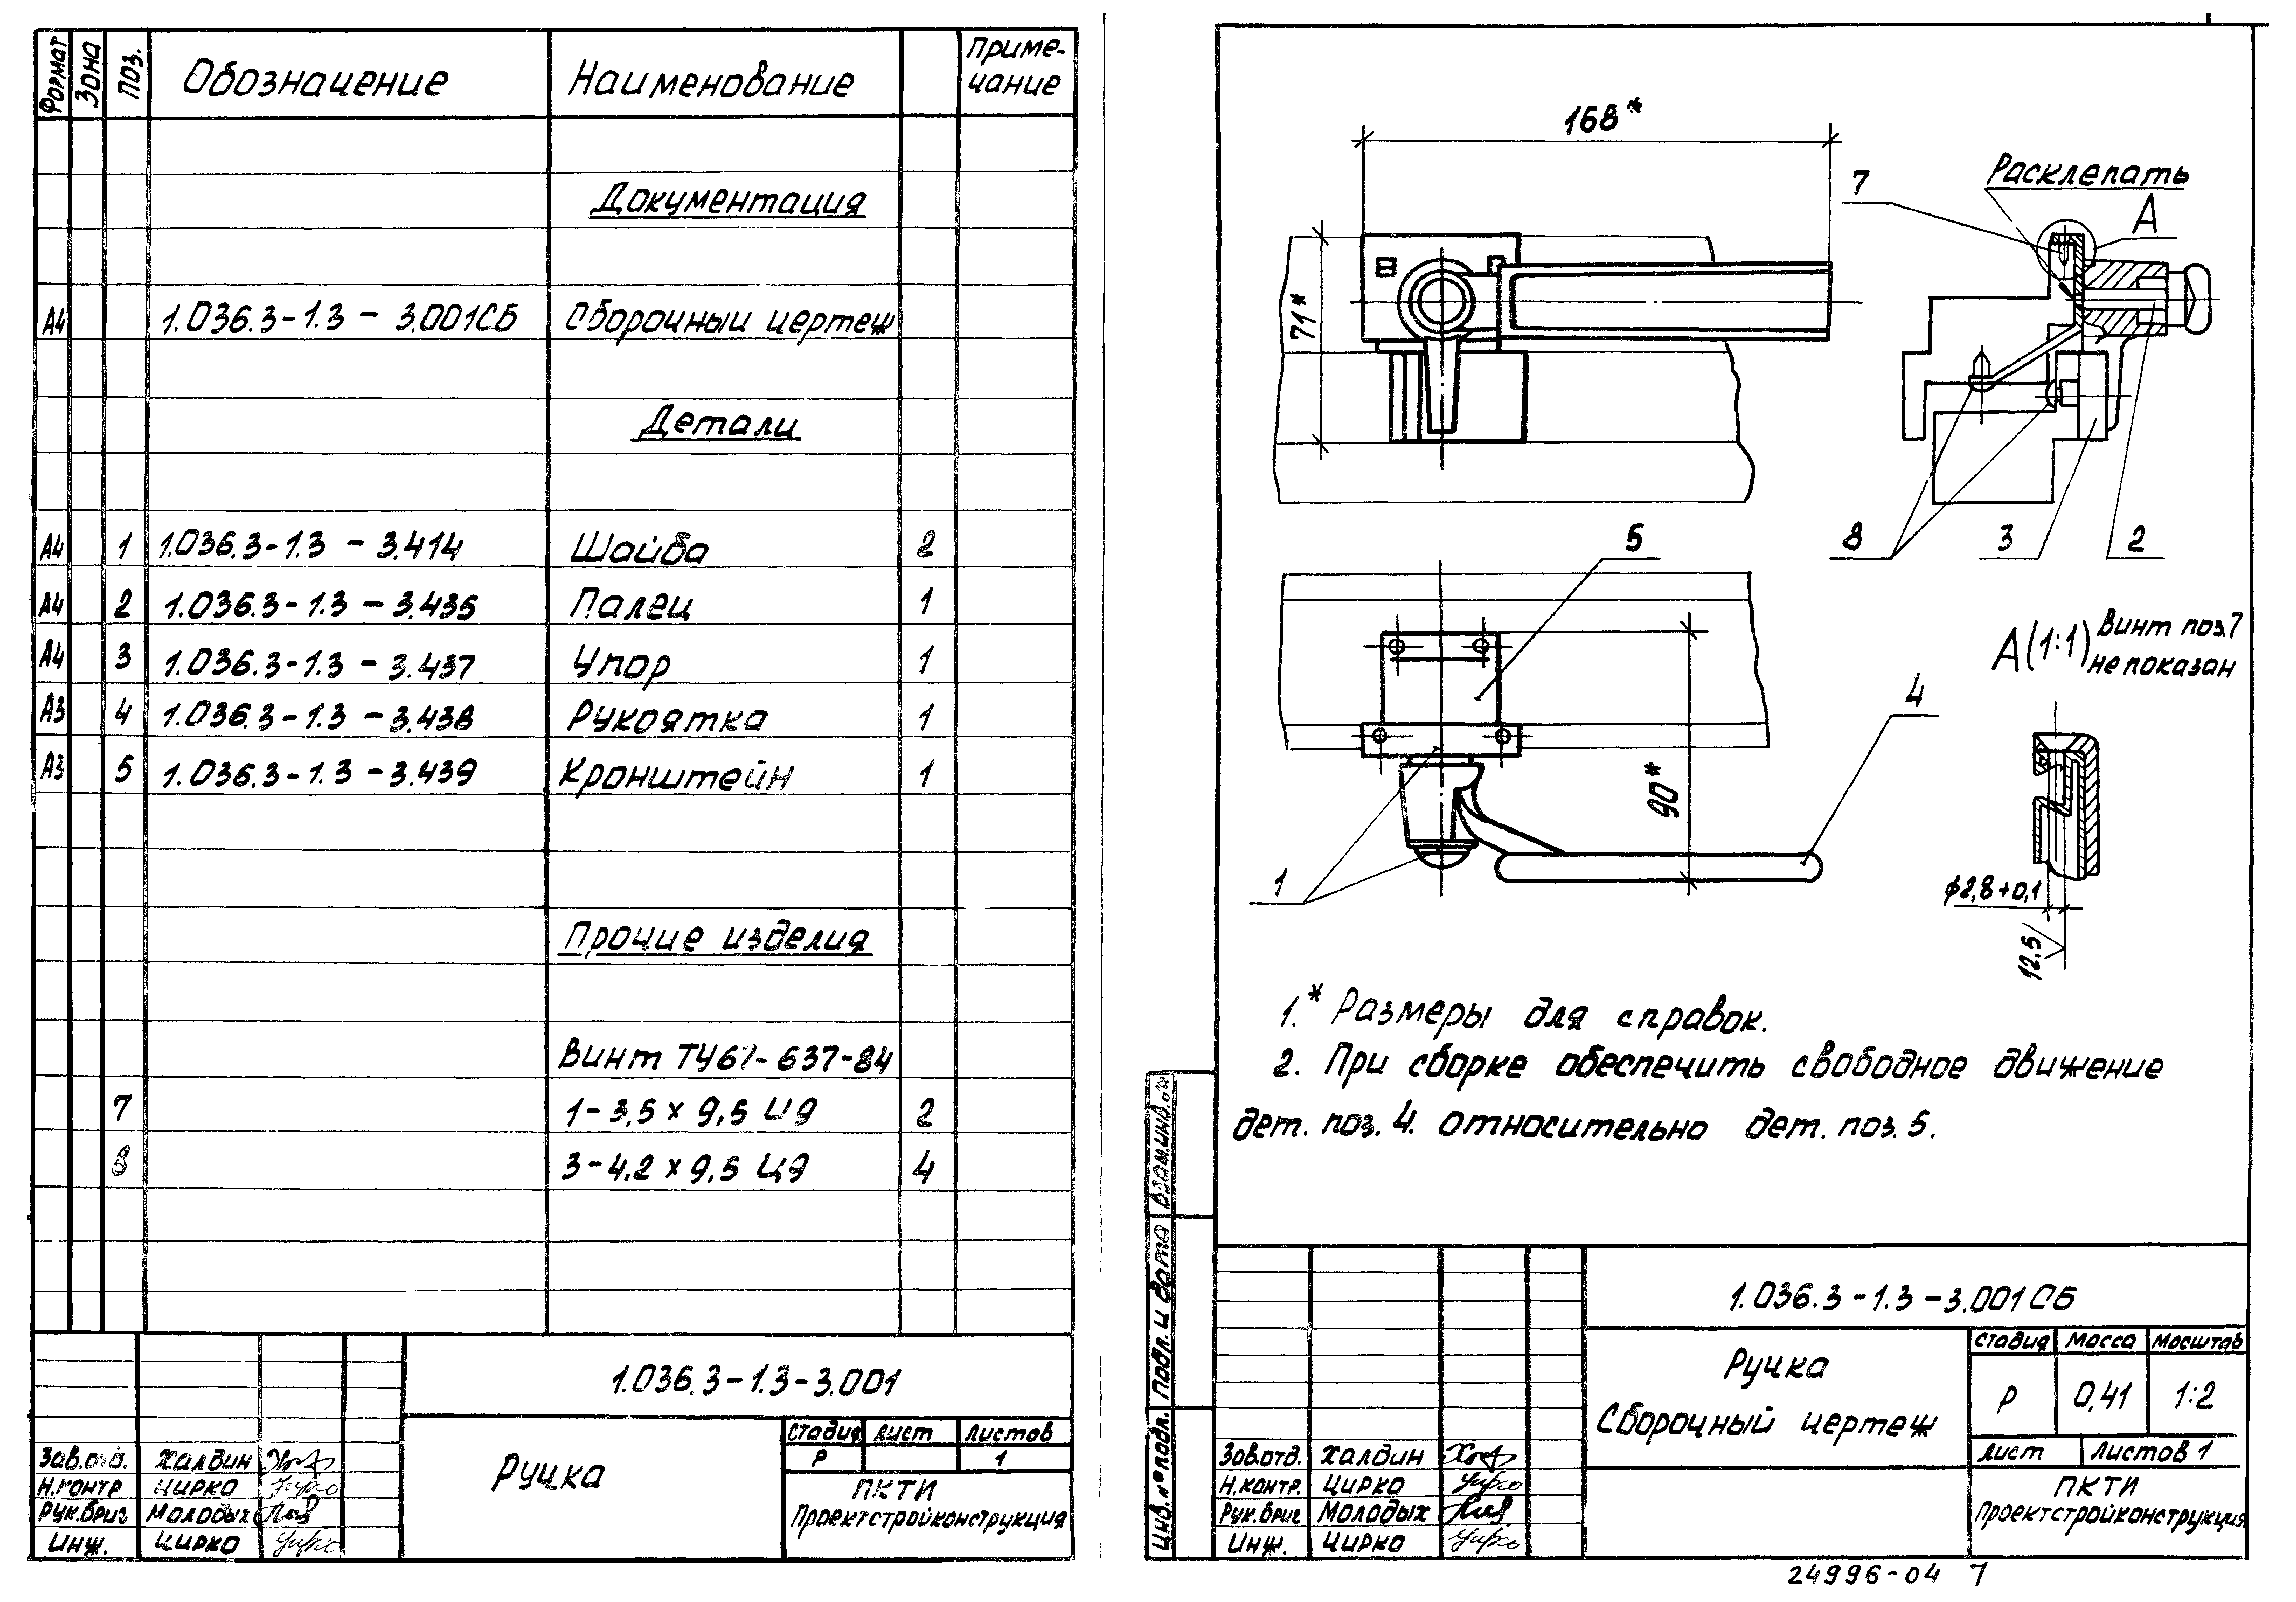 Формат Зона Поз. Обозначение Наименование Приме-
чание
Документация
А4 1.036.3-1.3 - 3.001СБ Сборочный чертеж
Детали
А4 1 1.036.3-1.3 - 3.414 Шайба 2
А4 2 1.036.3-1.3 - 3.435 Палец 1
А4 3 1.036.3-1.3 - 3.437 Упор 1
А3 4 1.036.3-1.3 - 3.438 Рукоятка 1
А3 5 1.036.3-1.3 - 3.439 Кронштейн 1
Прочие изделия
Винт ТУ67-637-84
7 1-3,5 х 9,5 Ц9 2
8 3-4,2 х 9,5 Ц9 4
1.036.3-1.3-3.001
Ручка
Стадия Лист Листов
Р 1
ПКТИ
Проектстройконструкция
Зав.отд. Халдин
Н.контр Цирко
Рук.бриг Молодых
Инж. Цирко
168*
7
Расклепать
А
71*
8 3 2
5
А(1:1) Винт поз.7
не показан
4
90*
1
ϕ2,8+0,1
12.5
1.* Размеры для справок.
2. При сборке обеспечить свободное движение
дет. поз. 4. относительно дет. поз. 5.
Взам.инв.№
Подп. и дата
Инв.№ подл.
1.036.3-1.3-3.001СБ
Ручка
Сборочный чертеж
Стадия Масса Масштаб
Р 0,41 1:2
Лист Листов 1
ПКТИ
Проектстройконструкция
Зав.отд. Халдин
Н.контр. Цирко
Рук.бриг Молодых
Инж. Цирко
24996-04 7